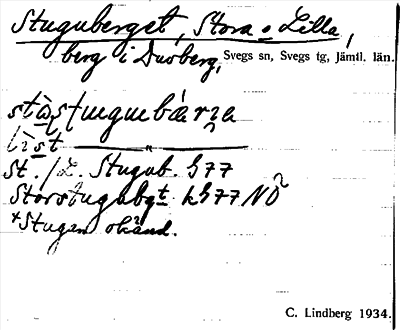 Stuguberget, Stora o Lilla,
berg i Duvberg, Svegs sn, Svegs tg, Jämtl. län.
St./L. Stugub. h77
Storstugubgt kh77 NÖ
+Stugan okänd.
C. Lindberg 1934.